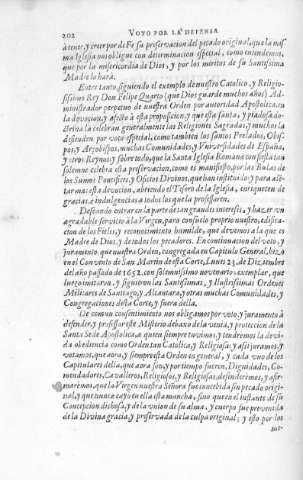 202 VOTO POR LA DEFENSA
à tener, y creer por de Fe su preservacion del pecado original, que la mesma
Iglesia nos obligue con determinacion especial, como entendemos,
que por la misericordia de Dios, y por los meritos de su Santissima
Madre lo hará.
Entre tanto, siguiendo el exemplo de nuestro Catolico, y Religiosissimo
Rey Don Felipe Quarto (que Dios guarde muchos años) Administrador
perpetuo de nuestra Orden por autoridad Apostolica, en
la devocion, y afecto à esta proposicion, y que esta santa, y piadosa doctrina
la celebran generalmente las Religiones Sagradas, y muchas la
defienden por voto especial, como tambien los santos Prelados, Obispos,
y Arçobispos, muchas Comunidades, y Universidades de España,
y otros Reynos; y sobre todo, que la Santa Iglesia Romana con fiesta tan
solemne celebra esta preservacion, como es manifiesto por las Bulas de
los Sumos Pontifices, y Oficios Divinos, que han instituido, y para alentar
mas esta devocion, abriendo el Tesoro de la Iglesia, enriquecen de
gracias, è indulgencias à todos los que la professaren.
Deseando entrar en la parte de tan grandes interesses, y hazer un
agradable servicio à la Virgen, para consuelo proprio nuestro, edificacion
de los Fieles, y reconocimiento humilde, que devemos à la que es
Madre de Dios, y de todos los pecadores. En continuacion del voto, y
juramento, que nuestra Orden, congregada en Capitulo General, hizo
en el Convento de San Martin de esta Corte, Lunes 23. de Diziembre
del año passado de 1652. con solemnissimo novenario, exemplar, que
luego imitaron, y siguieron las Santissimas, è Ilustrissimas Ordenes
Militares de Santiago, y Alcantara, y otras muchas Comunidades, y
Congregaciones desta Corte, y fuera della.
De comun consentimiento nos obligamos por voto, y juramento à
defender, y professar este Misterio debaxo de la venia, y proteccion de la
Santa Sede Apostolica, à quien siempre tuvimos, y tendremos la devida
obediencia como Orden tan Catolica, y Religiosa, y assi juramos, y
votamos, que aora, y siempre esta Orden en general, y cada uno de los
Capitulares della, que aora son, y por tiempo fueren, Dignidades, Comendadores,
Cavalleros, Religiosos, y Religiosas, defenderèmos, y afirmarèmos,
que la Virgen nuestra Señora fue concebida sin pecado original,
y que nunca cayò en ella esta mancha, sino que en el instante de su
Concepcion dichosa, y de la union de su alma, y cuerpo fue prevenida
de la Divina gracia, y preservada de la culpa original; y esto por los